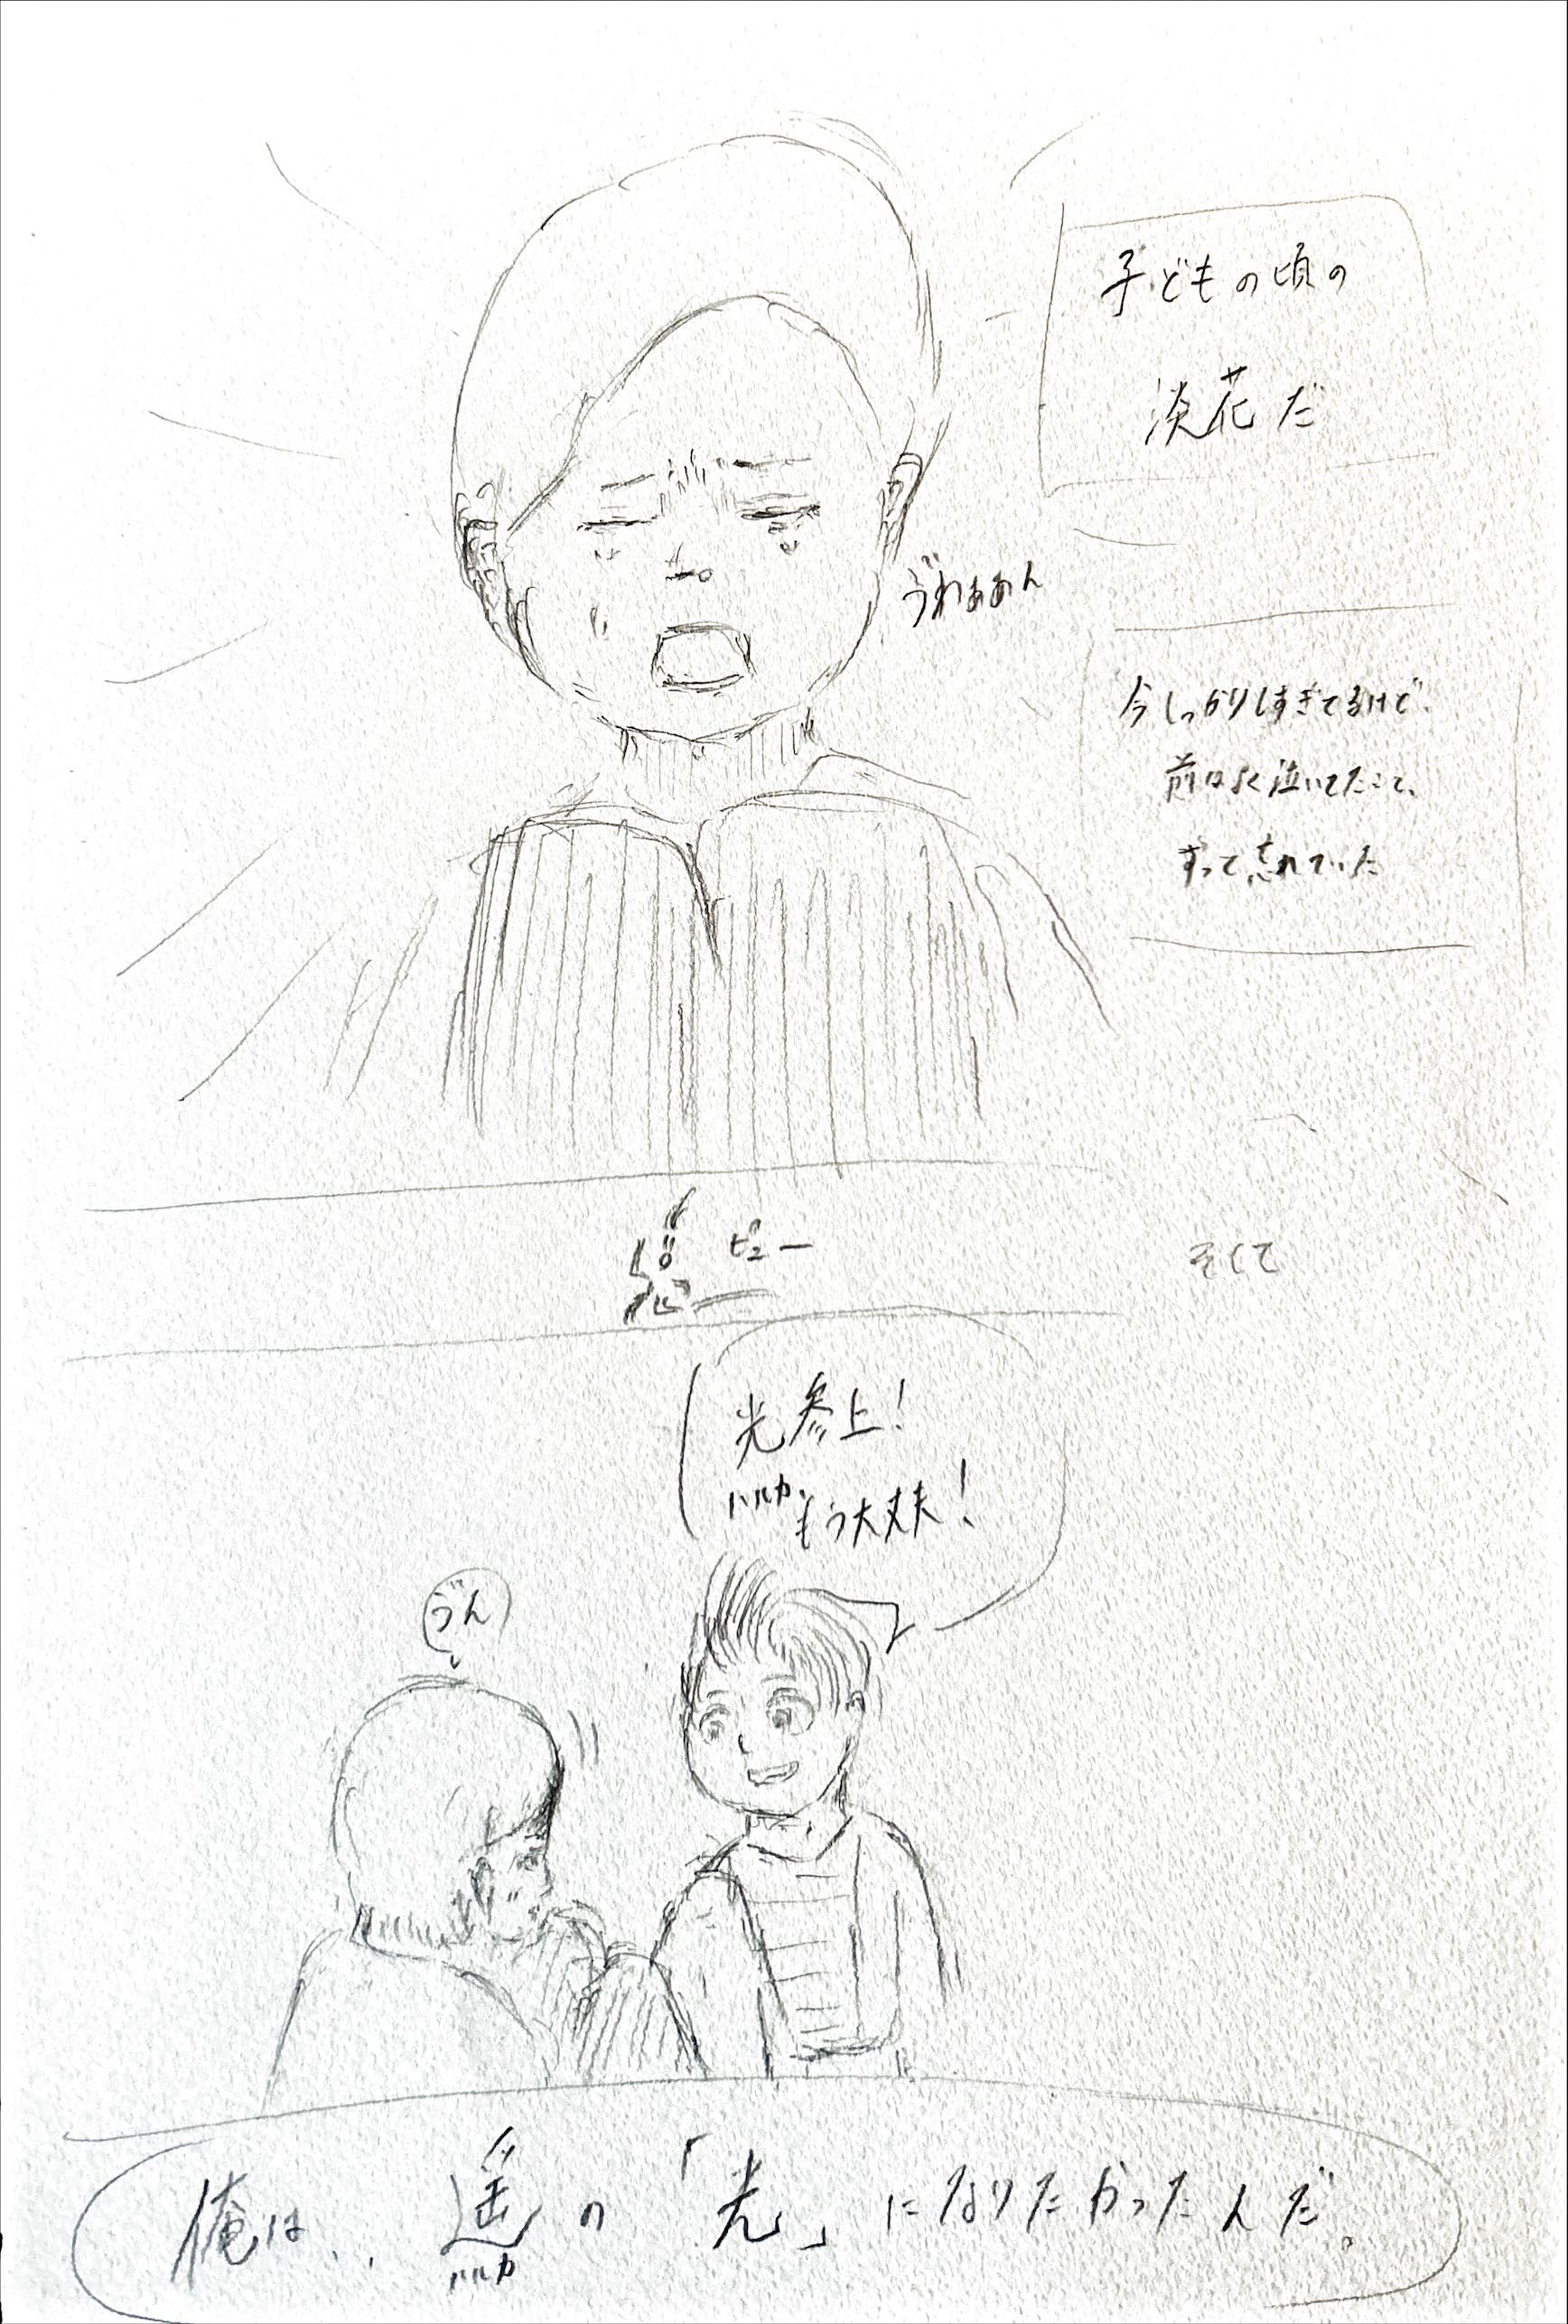 子どもの頃の
淡花だ
ゔわぁぁん
今しっかりしすぎてるけど、
前はよく泣いてたこと、
ずっと忘れていた
そして
ピュー
光参上!
ハルカ、もう大丈夫!
ゔん
俺は、、遥の「光」になりたかったんだ。
ハルカ